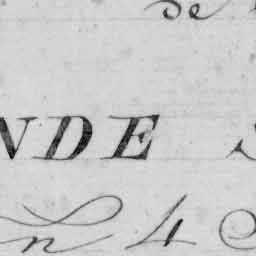 de
NDE
n 4